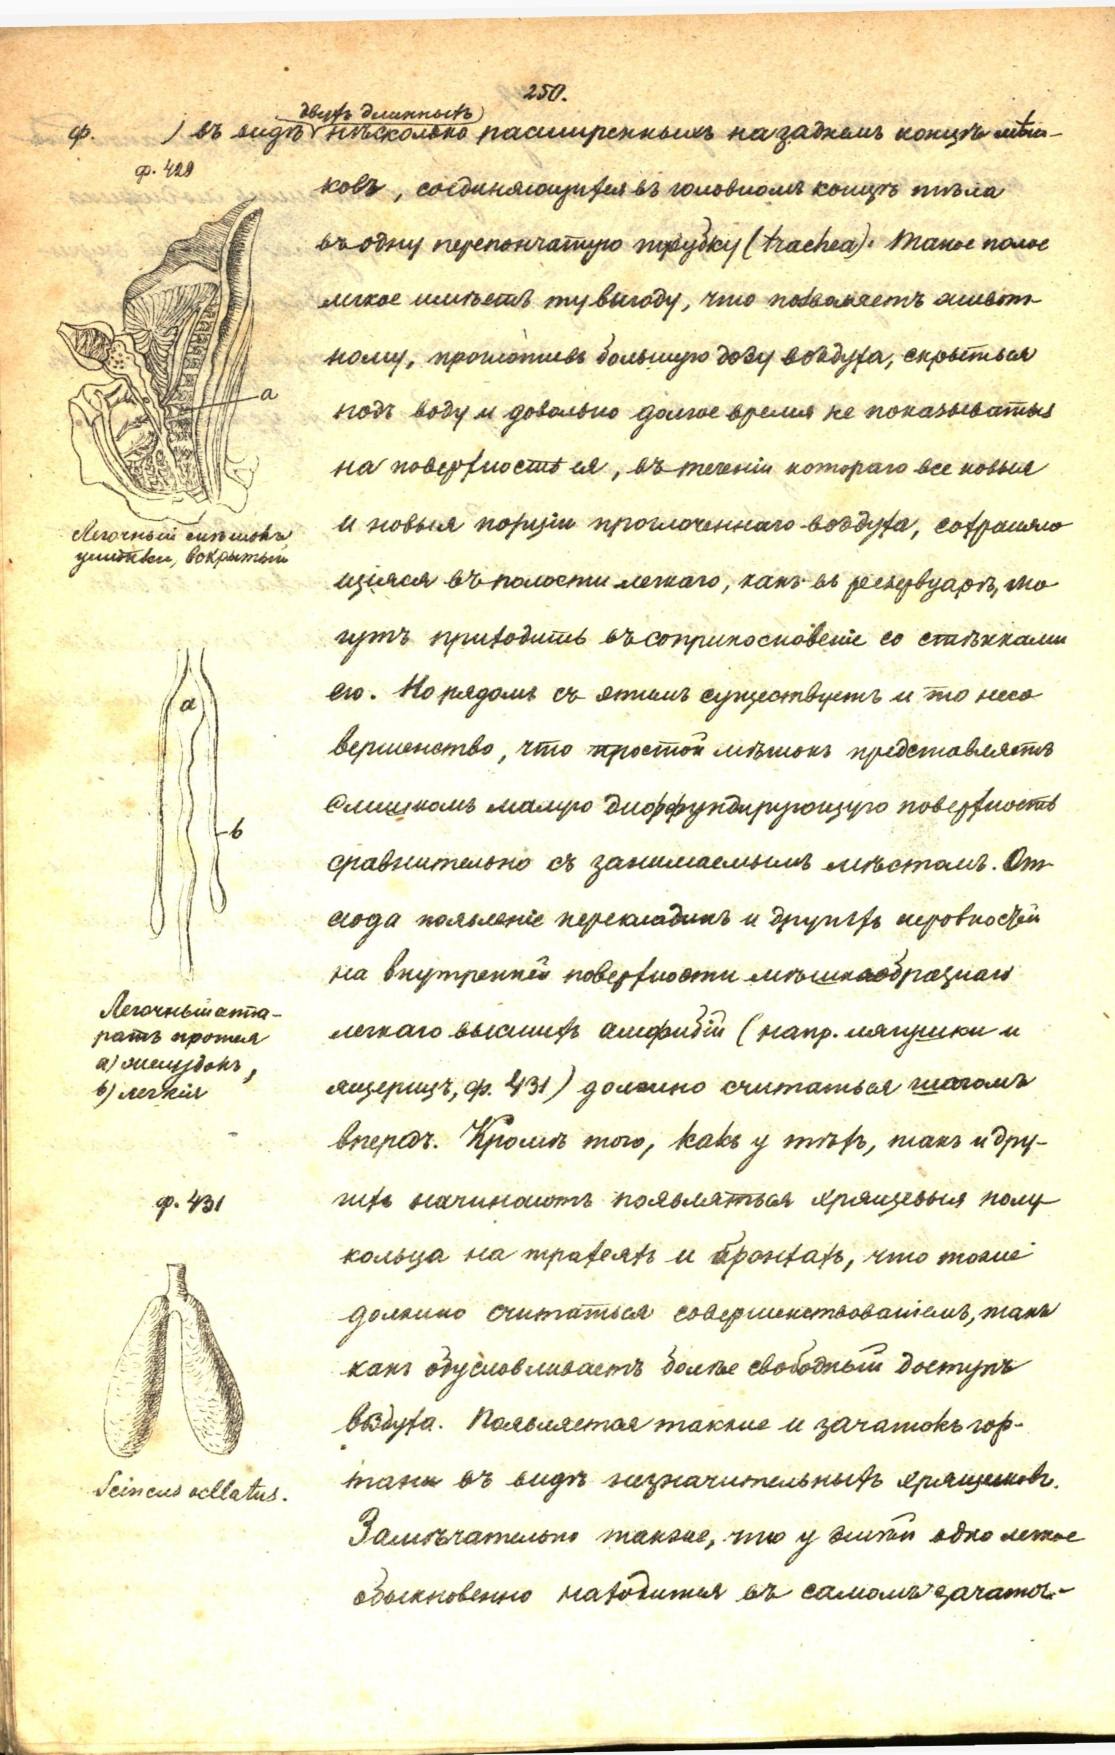 250.
двухъ длинныхъ
ф.      ) въ видѣ нѣсколько расширенныхъ на заднемъ концѣ мѣш-
ф. 429
ковъ, соединяющихся въ головномъ концѣ тѣла
въ одну перепончатую трубку (trachea). Такое полое
легкое имѣетъ ту выгоду, что позволяетъ живот-
ному, проглотивъ большую дозу воздуха, скрыться
a
подъ воду и довольно долгое время не показываться
на поверхность ея, въ теченіи котораго все новыя
и новыя порціи проглоченнаго воздуха, сохраняю
Легочный мѣшокъ
улитки, вскрытый
щіяся въ полости легкаго, какъ въ резервуарѣ, мо
гутъ приходить въ соприкосновеніе со стѣнками
его. Но рядомъ съ этимъ существуетъ и то несо
a
вершенство, что простой мѣшокъ представляетъ
слишкомъ малую диффундирующую поверхность
b
сравнительно съ занимаемымъ мѣстомъ. От
сюда появленіе перекладинъ и другихъ неровностей
на внутренней поверхности мѣшкообразнаго
Легочный аппа-
ратъ протея
a) желудокъ,
b) легкія
легкаго высшихъ амфибій (напр. лягушки и
ящерицъ, ф. 431) должно считаться шагомъ
впередъ. Кромѣ того, какъ у тѣхъ, такъ и дру-
ф. 431
гихъ начинаютъ появляться хрящевыя полу-
кольца на трахеяхъ и бронхахъ, что тоже
должно считаться совершенствованіемъ, такъ
какъ обусловливаетъ болѣе свободный доступъ
воздуха. Появляется также и зачатокъ гор-
тани въ видѣ незначительныхъ хрящиковъ.
Scincus ocllatus.
Замѣчательно также, что у змѣй одно легкое
обыкновенно находится въ самомъ зачаточ-